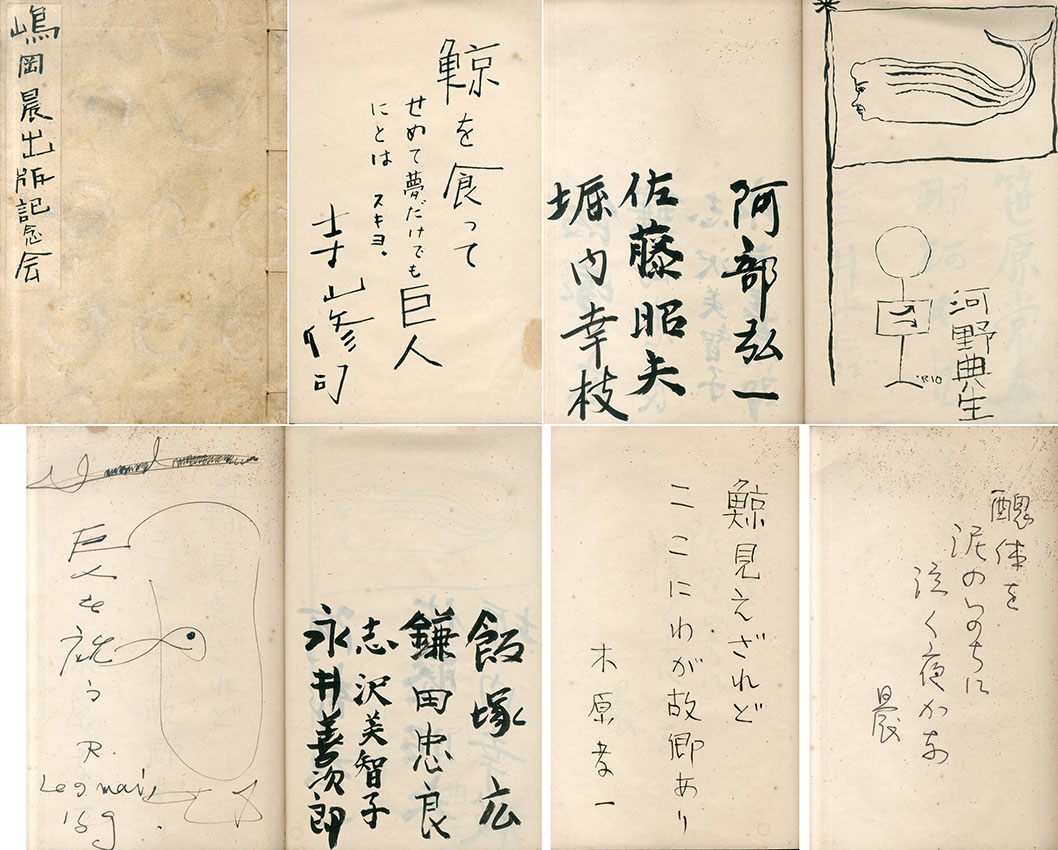 嶋岡晨出版記念会
鯨を食って
せめて夢だけでも巨人
にとは スキヨ、
寺山修司
阿部弘一
佐藤昭夫
堀内幸枝
河野典生
巨人を
R.
鯨見えざれど
ここにわが故郷あり
木原孝一
飯塚広
鎌田忠良
志沢美智子
永井善次郎
醜体を
泥のいのちに
泣く夜かな
晨